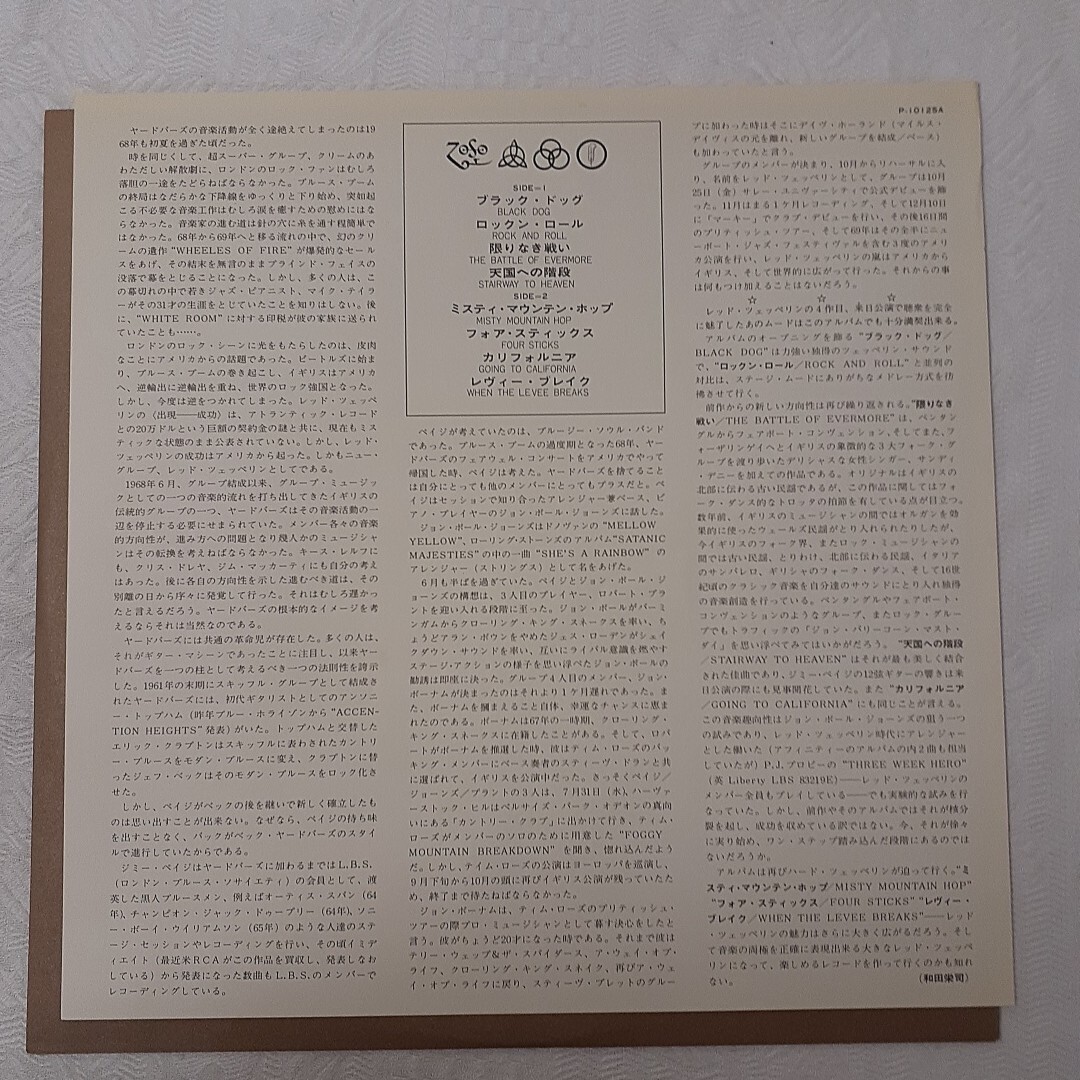 P-10125A
ヤードバーズの音楽活動が全く途絶えてしまったのは19
68年も初夏を過ぎた頃だった。
時を同じくして、超スーパー・グループ、クリームのあ
わただしい解散劇に、ロンドンのロック・ファンはむしろ
落胆の一途をたどらねばならなかった。ブルース・ブーム
の終局はなだらかな下降線をゆっくりと下り始め、突如起
こる不必要な音楽工作はむしろ涙を癒すための慰めにはな
らなかった。音楽家の進む道は針の穴に糸を通す程簡単で
はなかった。68年から69年へと移る流れの中で、幻のクリ
ームの遺作"WHEELES OF FIRE"が爆発的なセール
スをあげ、その結末を無言のままブラインド・フェイスの
没落で幕をとじることになった。しかし、多くの人は、こ
の幕切れの中で若きジャズ・ピアニスト、マイク・テイラ
ーがその31才の生涯をとじていたことを知りはしない。後
に、"WHITE ROOM"に対する印税が彼の家族に送られ
ていたことも……。
ロンドンのロック・シーンに光をもたらしたのは、皮肉
なことにアメリカからの話題であった。ビートルズに始ま
り、ブルース・ブームの巻き起こし、イギリスはアメリカ
へ、逆輸出に逆輸出を重ね、世界のロック強国となった。
しかし、今度は逆をつかれてしまった。レッド・ツェッペ
リンの〈出現——成功〉は、アトランティック・レコード
との20万ドルという巨額の契約金の謎と共に、現在もミス
ティックな状態のまま公表されていない。しかし、レッド・
ツェッペリンの成功はアメリカから起った。しかもニュー・
グループ、レッド・ツェッペリンとしてである。
1968年6月、グループ結成以来、グループ・ミュージッ
クとしての一つの音楽的流れを打ち出してきたイギリスの
伝統的グループの一つ、ヤードバーズはその音楽活動の一
辺を停止する必要にせまられていた。メンバー各々の音楽
的方向性が、進み方への問題となり幾人かのミュージシャ
ンはその転換を考えねばならなかった。キース・レルフに
も、クリス・ドレヤ、ジム・マッカーティにも自分の考え
はあった。後に各自の方向性を示した進むべき道は、その
別離の日から序々に発覚して行った。それはむしろ遅かっ
たと言えるだろう。ヤードバーズの根本的なイメージを考
えるならそれは当然なのである。
ヤードバーズには共通の革命児が存在した。多くの人は、
それがギター・マシーンであったことに注目し、以来ヤー
ドバーズを一つの柱として考えるべき一つの法則性を誇示
した。1961年の末期にスキッフル・グループとして結成さ
れたヤードバーズには、初代ギタリストとしてのアンソニ
ー・トップハム(昨年ブルー・ホライゾンから"ACCEN-
TION HEIGHTS"発表)がいた。トップハムと交替した
エリック・クラプトンはスキッフルに表わされたカントリ
ー・ブルースをモダン・ブルースに変え、クラプトンに替
ったジェフ・ベックはそのモダン・ブルースをロック化さ
せた。
しかし、ペイジがベックの後を継いで新しく確立したも
のは思い出すことが出来ない。なぜなら、ペイジの持ち味
を出すことなく、バックがベック・ヤードバーズのスタイ
ルで進行していたからである。
ジミー・ペイジはヤードバーズに加わるまではL.B.S.
(ロンドン・ブルース・ソサイエティ)の会員として、渡
英した黒人ブルースメン、例えばオーティス・スパン(64
年)、チャンピオン・ジャック・ドゥープリー(64年)、ソニ
ー・ボーイ・ウイリアムソン(65年)のような人達のステ
ージ・セッションやレコーディングを行い、その頃イミデ
ィエイト(最近米RCAがこの作品を買収し、発表しなお
している)から発表になった数曲もL.B.S.のメンバーで
レコーディングしている。
ZoSo
SIDE=1
ブラック・ドッグ
BLACK DOG
ロックン・ロール
ROCK AND ROLL
限りなき戦い
THE BATTLE OF EVERMORE
天国への階段
STAIRWAY TO HEAVEN
SIDE=2
ミスティ・マウンテン・ホップ
MISTY MOUNTAIN HOP
フォア・スティックス
FOUR STICKS
カリフォルニア
GOING TO CALIFORNIA
レヴィー・ブレイク
WHEN THE LEVEE BREAKS
ペイジが考えていたのは、ブルージー・ソウル・バンド
であった。ブルース・ブームの過度期となった68年、ヤー
ドバーズのフェアウェル・コンサートをアメリカでやって
帰国した時、ペイジは考えた。ヤードバーズを捨てること
は自分にとっても他のメンバーにとってもプラスだと。ペ
イジはセッションで知り合ったアレンジャー兼ベース、ピ
アノ・プレイヤーのジョン・ポール・ジョーンズに話した。
ジョン・ポール・ジョーンズはドノヴァンの"MELLOW
YELLOW"、ローリング・ストーンズのアルバム"SATANIC
MAJESTIES"の中の一曲"SHE'S A RAINBOW"の
アレンジャー(ストリングス)として名をあげた。
6月も半ばを過ぎていた。ペイジとジョン・ポール・ジ
ョーンズの構想は、3人目のプレイヤー、ロバート・プラ
ントを迎い入れる段階に至った。ジョン・ポールがバーミ
ンガムからクローリング・キング・スネークスを率い、ち
ょうどアラン・ボウンをやめたジェス・ローデンがシェイ
クダウン・サウンドを率い、互いにライバル意識を燃やす
ステージ・アクションの様子を思い浮べたジョン・ポールの
勧誘は即座に決った。グループ4人目のメンバー、ジョン・
ボーナムが決まったのはそれより1ケ月遅れであった。ま
た、ボーナムを捕まえること自体、幸運なチャンスに恵ま
れたのである。ボーナムは67年の一時期、クローリング・
キング・スネークスに在籍したことがある。そして、ロバ
ートがボーナムを推選した時、彼はティム・ローズのバッ
キング・メンバーにベース奏者のスティーヴ・ドランと共
に選ばれて、イギリスを公演中だった。さっそくペイジ/
ジョーンズ/プラントの3人は、7月31日(水)、ハーヴァ
ーストック・ヒルはベルサイズ・パーク・オデオンの真向
いにある「カントリー・クラブ」に出かけて行き、ティム・
ローズがメンバーのソロのために用意した"FOGGY
MOUNTAIN BREAKDOWN"を聞き、惚れ込んだよう
だ。しかし、テイム・ローズの公演はヨーロッパを巡演し、
9月下旬から10月の頭に再びイギリス公演が残っていたた
め、終了まで待たねばならなかった。
ジョン・ボーナムは、ティム・ローズのブリティッシュ・
ツアーの際プロ・ミュージシャンとして暮す決心をしたと
言う。彼がちょうど20才になった時である。それまで彼は
テリー・ウェッブ&ザ・スパイダース、ア・ウェイ・オブ・
ライフ、クローリング・キング・スネイク、再びア・ウェ
イ・オブ・ライフに戻り、スティーヴ・ブレットのグルー
プに加わった時はそこにデイヴ・ホーランド(マイルス・
デイヴィスの元を離れ、新しいグループを結成/ベース)
も加わっていたと言う。
グループのメンバーが決まり、10月からリハーサルに入
り、名前をレッド・ツェッペリンとして、グループは10月
25日(金)サレー・ユニヴァーシティで公式デビューを飾
った。11月はまる1ケ月レコーディング、そして12月10日
に「マーキー」でクラブ・デビューを行い、その後16日間
のブリティッシュ・ツアー、そして69年はその全半にニュ
ーポート・ジャズ・フェスティヴァルを含む3度のアメリ
カ公演を行い、レッド・ツェッペリンの嵐はアメリカから
イギリス、そして世界的に広がって行った。それからの事
は何もつけ加えることはないだろう。
☆ ☆ ☆
レッド・ツェッペリンの4作目、来日公演で聴衆を完全
に魅了したあのムードはこのアルバムでも十分満喫出来る。
アルバムのオープニングを飾る"ブラック・ドッグ/
BLACK DOG"は力強い独得のツェッペリン・サウンド
で、"ロックン・ロール/ROCK AND ROLL"と並列の
対比は、ステージ・ムードにありがちなメドレー方式を彷
彿させて行く。
前作からの新しい方向性は再び繰り返される。"限りなき
戦い/THE BATTLE OF EVERMORE"は、ペンタン
グルからフェアポート・コンヴェンション、そしてまた、フ
ォーザリンゲイへとイギリスの象徴的な3大フォーク・グ
ループを渡り歩いたデリシャスな女性シンガー、サンディ
・デニーを加えての作品である。オリジナルはイギリスの
北部に伝わる古い民謡であるが、この作品に関してはフォ
ーク・ダンス的なトロッタの拍節を有している点が目立つ。
数年前、イギリスのミュージシャンの間ではオルガンを効
果的に使ったウェールズ民謡がとり入れられたりしたが、
今イギリスのフォーク界、またロック・ミュージシャンの
間では古い民謡、とりわけ、北部に伝わる民謡、イタリア
のサンバレロ、ギリシャのフォーク・ダンス、そして16世
紀頃のクラシック音楽を自分達のサウンドにとり入れ独得
の音楽創造を行っている。ペンタングルやフェアポート・
コンヴェンションのようなグループ、またロック・グルー
プでもトラフィックの「ジョン・バリーコーン・マスト・
ダイ」を思い浮べてみてはいかがだろう。"天国への階段
/STAIRWAY TO HEAVEN"はそれが最も美しく結合さ
れた佳曲であり、ジミー・ペイジの12弦ギターの響きは来
日公演の際にも見事開花していた。また"カリフォルニア
/GOING TO CALIFORNIA"にも同じことが言える。
この音楽趣向性はジョン・ポール・ジョーンズの狙う一つ
の試みであり、レッド・ツェッペリン時代にアレンジャー
とした働いた(アフィニティーのアルバムの内2曲も担当
していたが)P.J.プロビーの"THREE WEEK HERO"
(英 Liberty LBS 83219E)——レッド・ツェッペリンの
メンバー全員もプレイしている——でも実験的な試みを行
なっていた。しかし、前作やそのアルバムではそれが核分
裂を起し、成功を収めている訳ではない。今、それが徐々
に実り始め、ワン・ステップ踏み込んだ段階にあるのでは
ないだろうか。
アルバムは再びハード・ツェッペリンが迫って行く。"ミ
スティ・マウンテン・ホップ/MISTY MOUNTAIN HOP"
"フォア・スティックス/FOUR STICKS" "レヴィー・
ブレイク/WHEN THE LEVEE BREAKS"——レッド
・ツェッペリンの魅力はさらに大きく広がるだろう。そし
て音楽の両極を正確に表現出来る大きなレッド・ツェッペ
リンになって、楽しめるレコードを作って行くのかも知れ
ない。
(和田栄司)